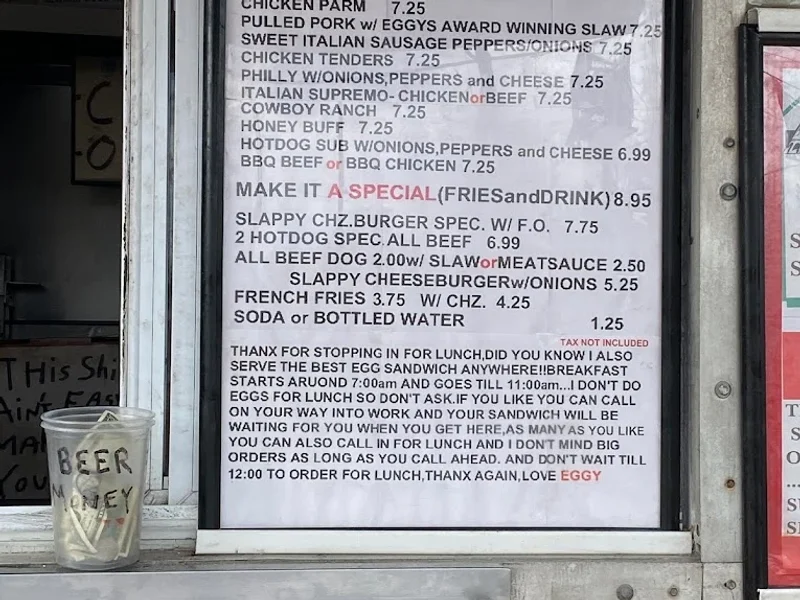 CHICKEN PARM 7.25
PULLED PORK w/ EGGYS AWARD WINNING SLAW 7.25
SWEET ITALIAN SAUSAGE PEPPERS/ONIONS 7.25
CHICKEN TENDERS 7.25
PHILLY W/ONIONS,PEPPERS and CHEESE 7.25
ITALIAN SUPREMO- CHICKENorBEEF 7.25
COWBOY RANCH 7.25
HONEY BUFF 7.25
HOTDOG SUB W/ONIONS,PEPPERS and CHEESE 6.99
BBQ BEEF or BBQ CHICKEN 7.25
MAKE IT A SPECIAL(FRIESandDRINK) 8.95
SLAPPY CHZ.BURGER SPEC. W/ F.O. 7.75
2 HOTDOG SPEC.ALL BEEF 6.99
ALL BEEF DOG 2.00w/ SLAWorMEATSAUCE 2.50
SLAPPY CHEESEBURGERw/ONIONS 5.25
FRENCH FRIES 3.75 W/ CHZ. 4.25
SODA or BOTTLED WATER 1.25
TAX NOT INCLUDED
THANX FOR STOPPING IN FOR LUNCH,DID YOU KNOW I ALSO
SERVE THE BEST EGG SANDWICH ANYWHERE!!BREAKFAST
STARTS ARUOND 7:00am AND GOES TILL 11:00am...I DON'T DO
EGGS FOR LUNCH SO DON'T ASK.IF YOU LIKE YOU CAN CALL
ON YOUR WAY INTO WORK AND YOUR SANDWICH WILL BE
WAITING FOR YOU WHEN YOU GET HERE,AS MANY AS YOU LIKE
YOU CAN ALSO CALL IN FOR LUNCH AND I DON'T MIND BIG
ORDERS AS LONG AS YOU CALL AHEAD. AND DON'T WAIT TILL
12:00 TO ORDER FOR LUNCH,THANX AGAIN,LOVE EGGY
THis Shi
Ain't Eas
BEER
MONEY